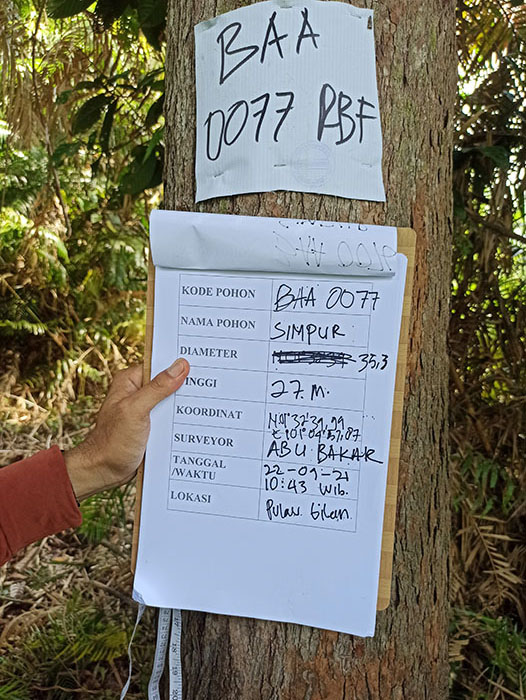 BAA
0077 RBF
KODE POHON BAA 0077
NAMA POHON SIMPUR
DIAMETER 35,3
TINGGI 27 M.
KOORDINAT N01°32'39,99
E 101°04'57,87
SURVEYOR ABU BAKAR
TANGGAL 22-09-21
/WAKTU 10:43 Wib.
LOKASI Pulau